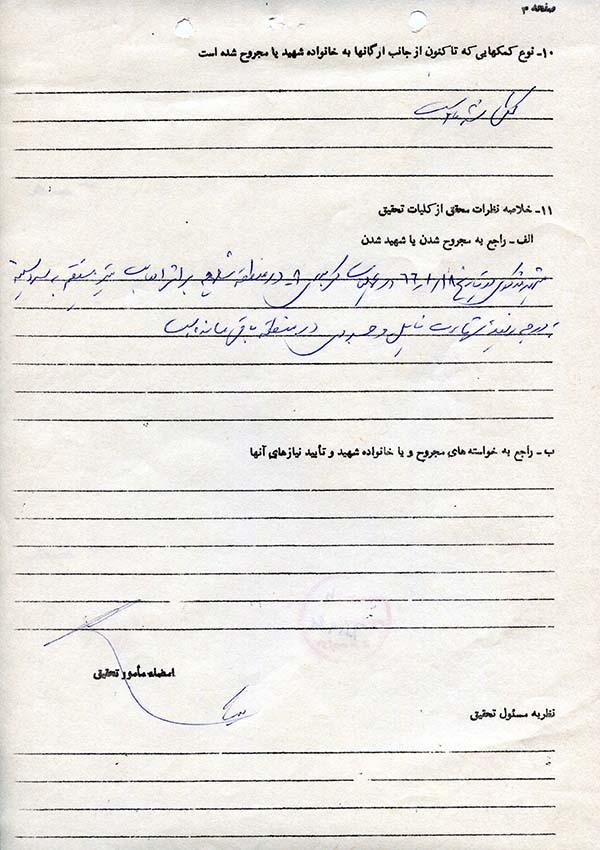 صفحه ۳
۱۰- نوع کمکهایی که تاکنون از جانب ارگانها به خانواده شهید یا مجروح شده است
شده است
۱۱- خلاصه نظرات محقق از کلیات تحقیق
الف - راجع به مجروح شدن یا شهید شدن
شهید مذکور در تاریخ ۶۶/۱/۱۸ در عملیات کربلای ۸ در منطقه شلمچه بر اثر اصابت تیر مستقیم به
به درجه رفیع شهادت نایل و در منطقه باقی مانده است
ب - راجع به خواسته های مجروح و یا خانواده شهید و تأیید نیازهای آنها
امضاء مأمور تحقیق
نظریه مسئول تحقیق